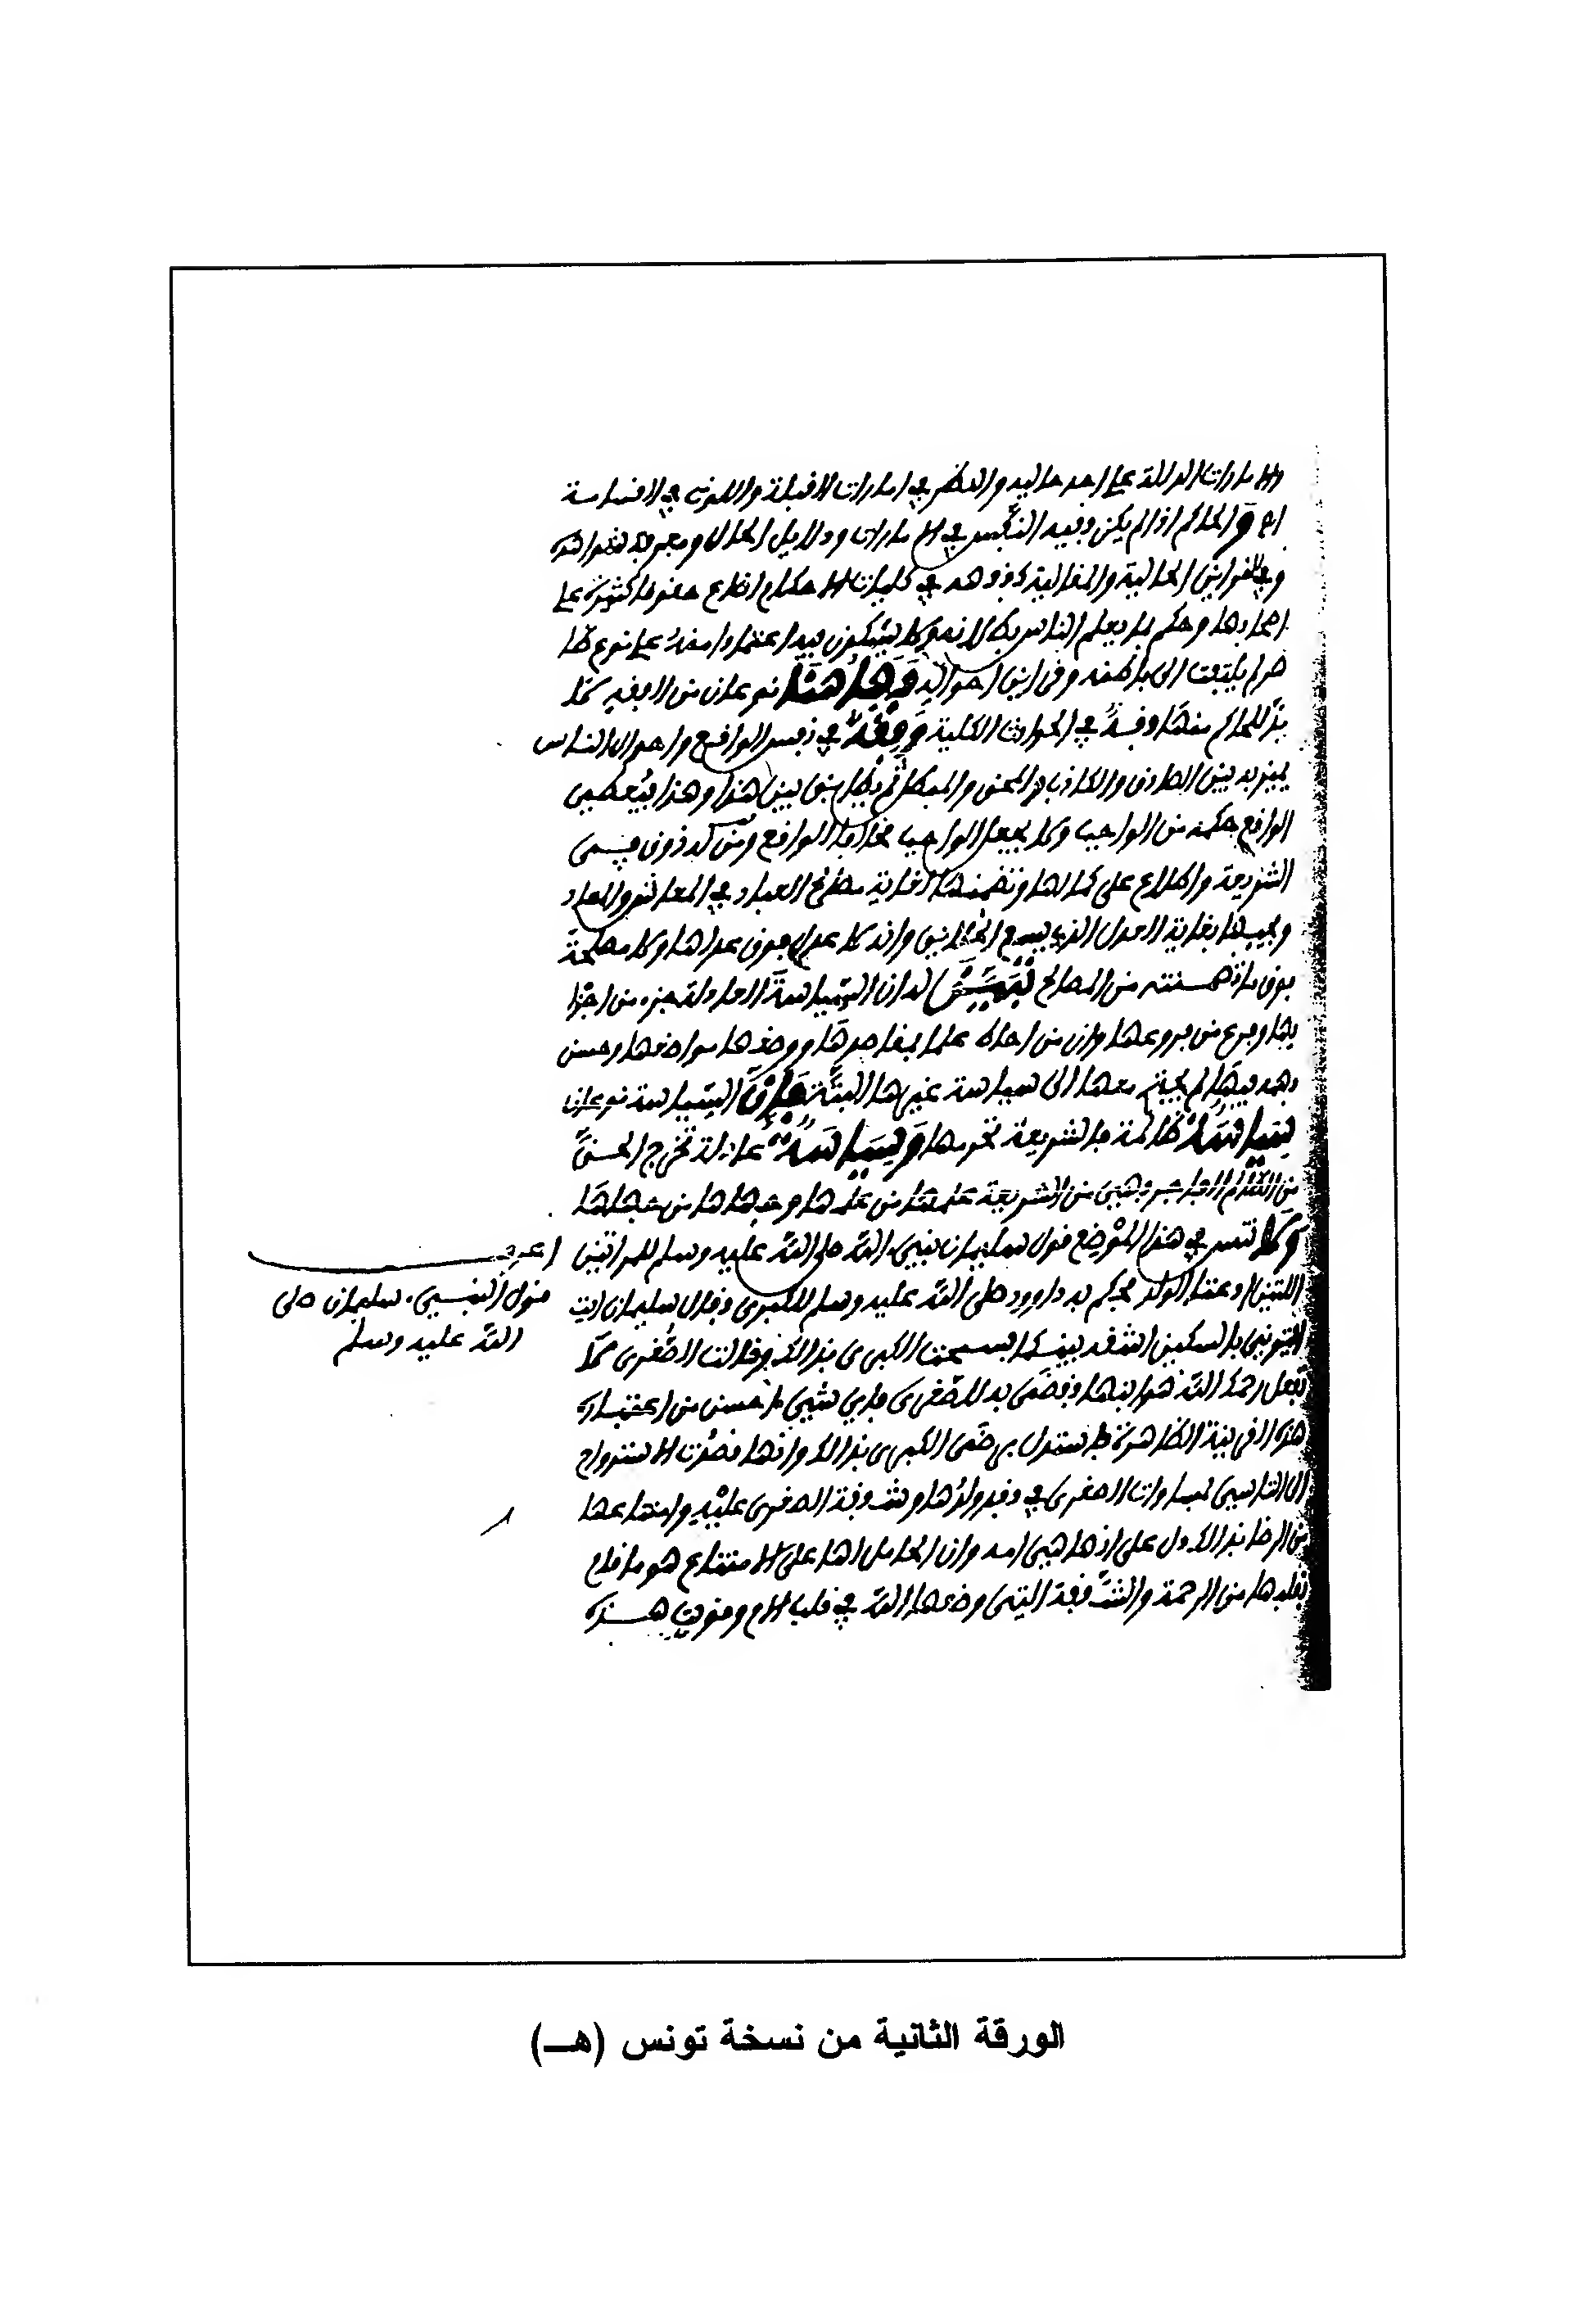 الامارات الدالة على احد حاليه والنظر في امارات القبلة واللوث في القسامة
والحاكم اذا لم يكن فقيه النفس في الامارات ودلايل الحال ومعرفة شواهده
وفي القراين الحالية والمقالية كفقهه في كليات الاحكام اضاع حقوقا كثيرة على
اصحابها وحكم بما يعلم الناس بطلانه ولا يشكون فيه اعتمادا منه على نوع ظا
هر لم يلتفت الى باطنه وقراين احواله فهاهنا نوعان من الفقه لا
بد للحاكم منهما فقه في الحوادث الكلية وفقه في نفس الواقع واحوال الناس
يميز به بين الصادق والكاذب والمحق والمبطل ثم يطابق بين هذا وهذا فيعطي
الواقع حكمه من الواجب ولا يجعل الواجب مخالفا للواقع ومن له ذوق في
الشريعة واطلاع على كمالها وتضمنها لغاية مصالح العباد في المعاش والمعاد
ومجيبها بغاية العدل الذي يسع الخلايق وانه لا عدل فوق عدلها ولا مصلحة
فوق ما تضمنته من المصالح تبين له ان السياسة العادلة جزء من اجزا
يها وفرع من فروعها وان من احاط علما بمقاصدها ووضعها مواضعها وحسن
فهمه فيها لم يحتج معها الى سياسة غيرها البتة فان السياسة نوعان
سياسة ظالمة فالشريعة تحرمها وسياسة عادلة تخرج الحق
من الظالم الفاجر فهي من الشريعة علمها من علمها وجهلها من جهلها
ولا تنس في هذا الموضع قول سليمان نبي الله صلى الله عليه وسلم للمراتين
اللتين ادعتا الولد فحكم به داوود صلى الله عليه وسلم للكبرى فقال سليمان ايت
ايتوني بالسكين اشقه بينكما فسمحت الكبرى بذلك وقالت الصغرى لا
تفعل رحمك الله هو ابنها فقضى به للصغرى فاي شيء احسن من اعتبار
هذه القرينة الظاهرة فاستدل برضى الكبرى بذلك وانها قصدت الاسترواح
الى التاسي بمساوات الصغرى في فقد ولدها وشفقة الصغرى عليه وامتناعها
من الرضا بذلك دل على انها هي امه وان الحامل لها على الامتناع هو ما قام
بقلبها من الرحمة والشفقة التي وضعها الله في قلب الام وقويت هذه
اعرف
قول النبي سليمان صلى
الله عليه وسلم
الورقة الثانية من نسخة تونس (هـ)